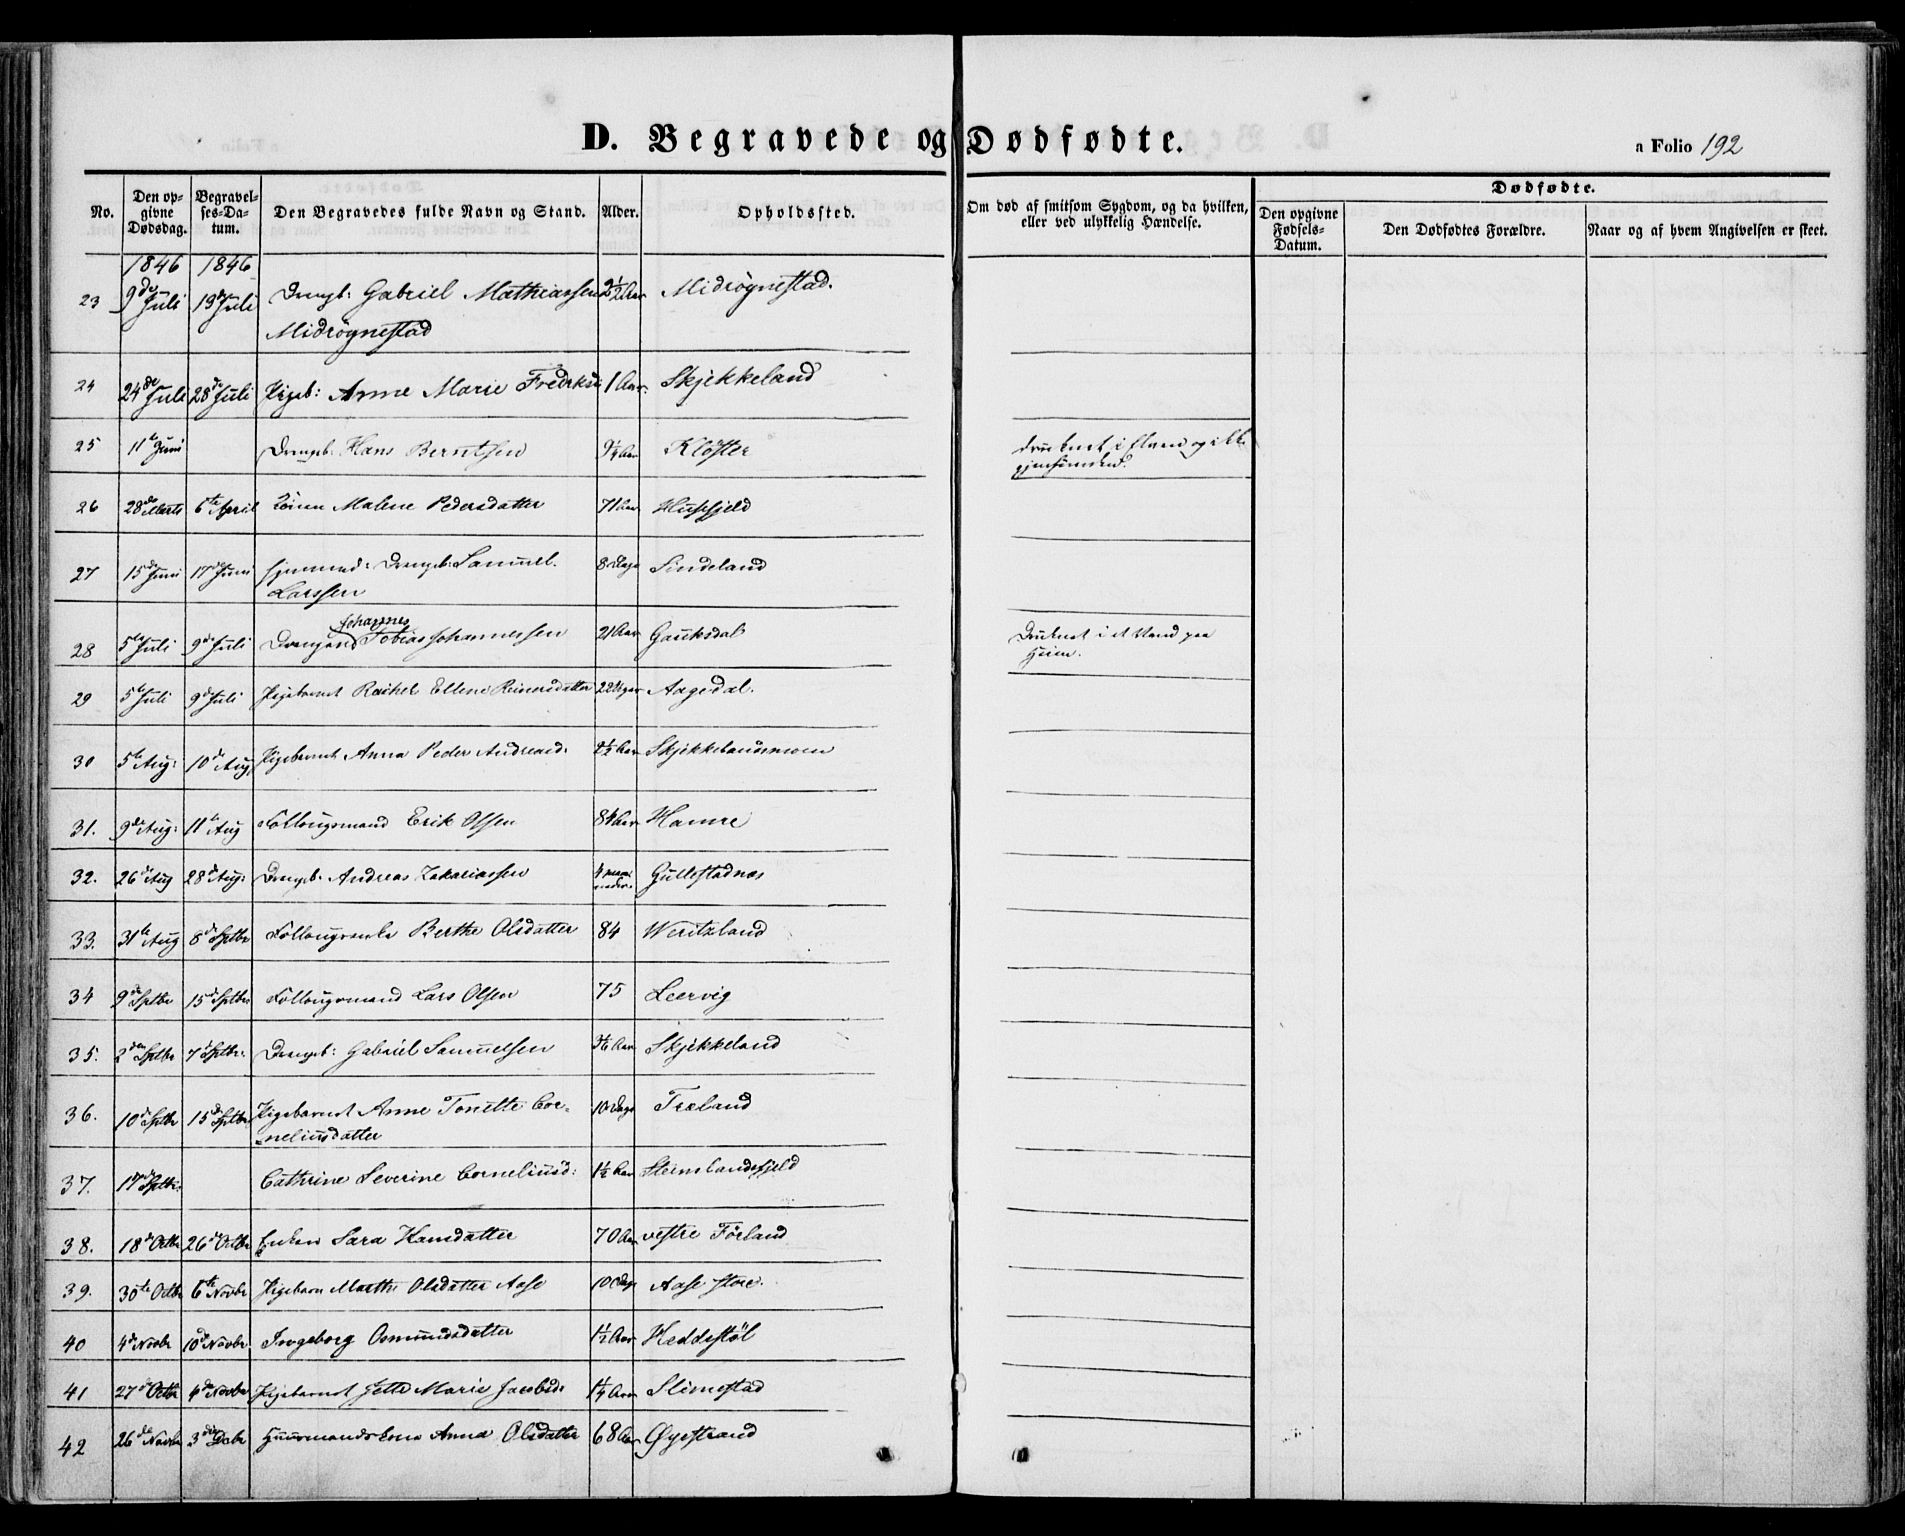 D. Begravede og Dødfødte.
a Folio 192
No. | Den opgivne Dødsdag. | Begravelses-Datum. | Den Begravedes fulde Navn og Stand. | Alder. | Opholdssted. | Om død af smitsom Sygdom, og da hvilken, eller ved ulykkelig Hændelse. | Dødfødte. | Den opgivne Fødsels-Datum. | Den Dødfødtes Forældre. | Naar og af hvem Angivelsen er skeet.
1846 1846
23 9de Juli 19de Juli Drengb: Gabriel Mathiassen 2½ Aar Midrøgnestad.
Midrøgnestad
24 24de Juli 28de Juli Pigeb: Anne Marie Fredriksd 1 Aar. Skjekkeland
25 11te Juni Drengb: Hans Berntsen Aar Kløfter druknet i Elven og ikke
gjenfunden.
26 28de Marts 6te April Malene Pedersdatter 71 Aar Husefjeld
27 15de Juni 17de Juni Drengeb: Samuel 8 Dage Sindeland
Larssen
Johannes
28 5te Juli 9de Juli Tobias Johannessen 21 Aar Gauksdal Druknet i et Vand paa
Heien.
29 5te Juli 9de Juli Pigebarnet Rachel Ellene Reinersdatter 22 Uger Aagedal.
30 5te Aug: 10de Aug. Pigebarnet Anna Peder Andreasd. 2½ Aar Skjekkelandsmoen
31. 9de Aug: 11te Aug Follougsmand Erik Olsen 84 Aar Hamre
32. 26de Aug 28de Aug: Drengb. Andreas Zakariassen 4 Gullestadnes
33. 31te Aug 8de Sptbr Follougsenke Berthe Olsdatter 84 Weritzland
34 9de Sptbr 15de Sptbr Follougsmand Lars Olsen 75 Leervig
35. 2den Sptbr 7de Sptbr. Drengeb: Gabriel Samuelsen Aar Skjekkeland
36. 10de Sptbr 15de Sptbr Pigebarnet Anne Tonette Cor- 10 Dage Træland
neliusdatter
37. 17de Sptbr. Cathrine Severine Corneliusd: 1½ Aar Steinslandsfjeld
38. 18de Octbr 26de Octbr Enken Sara Hansdatter 70 Aar vestre Førland
39. 30te Octbr 6te Novbr Pigebarn Marthe Olsdatter Aase 10 Dage Aase store.
40 4de Novbr 10de Novbr. Ingeborg Osmundsdatter 1½ Aar Heddestøl
41 27de Octbr 4de Novbr Pigebarnet Jette Marie Jacobsd. 1¼ Aar Slimestad
42 26de Novbr 3die Decbr Huusmandskone Anna Olsdatter 68 Aar Øyestrand